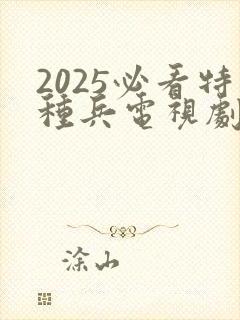 2025必看特
種兵電視劇
涂山